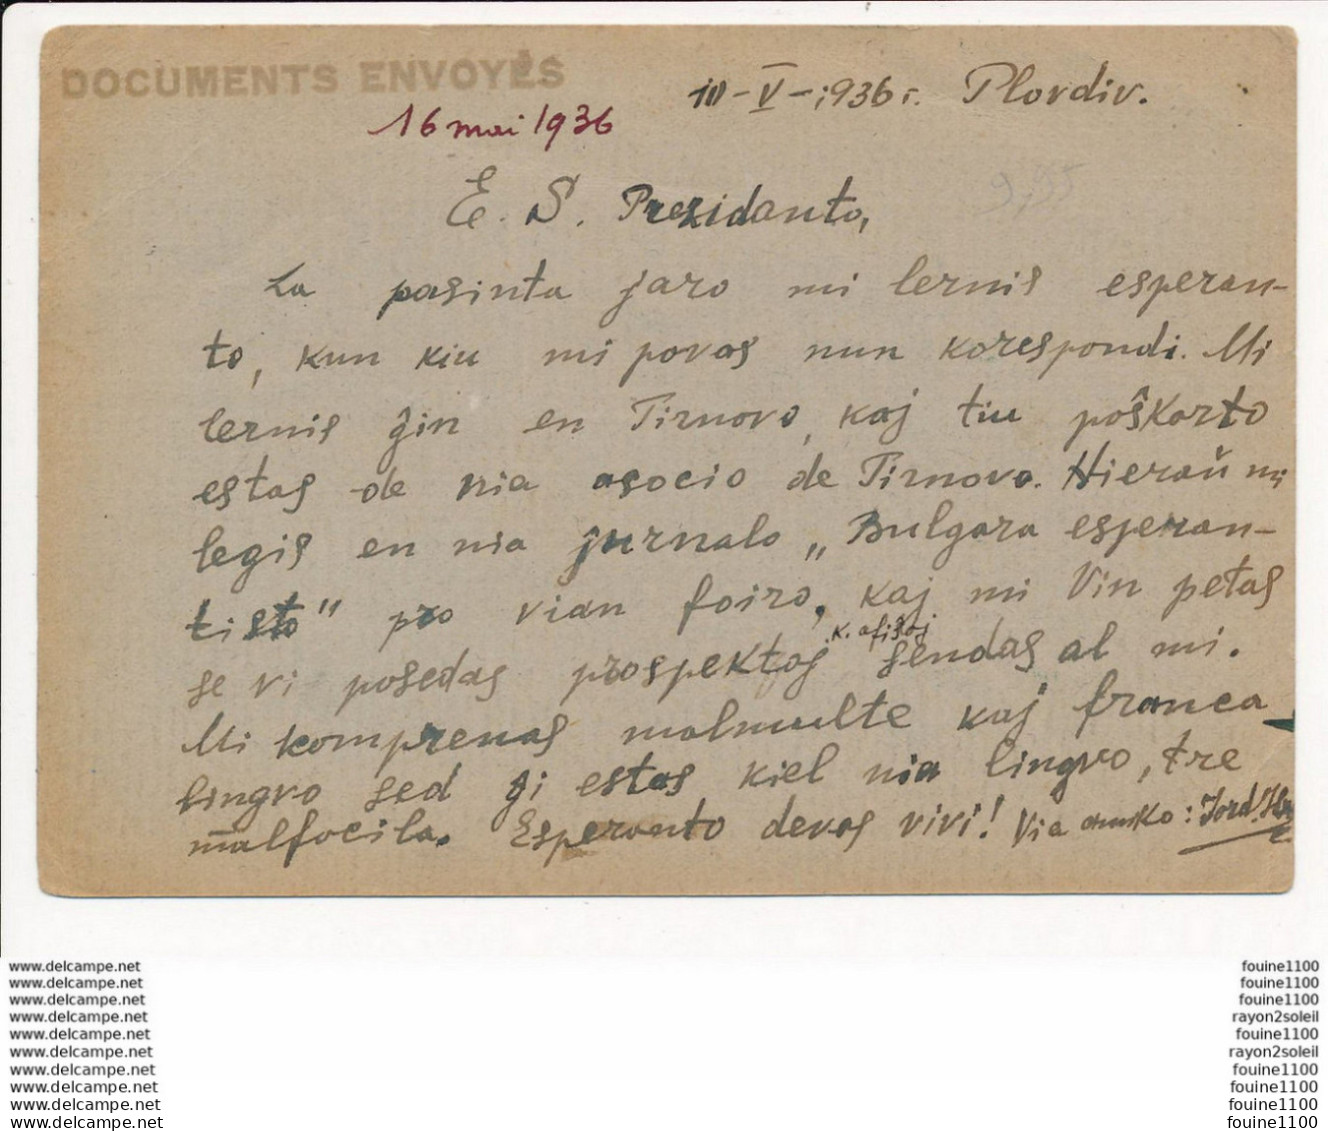 DOCUMENTS ENVOYÉS
16 mai 1936
10-V-1936 г. Plovdiv.
9,95
E. S. Prezidanto,
La pasinta jaro mi lernis esperan-
to, kun kiu mi povas nun korespondi. Mi
lernis ĝin en Tirnovo, kaj tiu poŝkarto
estas de nia asocio de Tirnovo. Hieraŭ mi
legis en nia ĵurnalo „Bulgara esperan-
tisto" pro vian foiro, kaj mi Vin petas
se vi posedas prospektoj k. afiŝoj sendas al mi.
Mi komprenas malmulte kaj franca
lingvo sed ĝi estas kiel nia lingvo, tre
malfacila. Esperanto devas vivi! Via amiko: Jord.
www.delcampe.net
www.delcampe.net
www.delcampe.net
www.delcampe.net
www.delcampe.net
www.delcampe.net
www.delcampe.net
www.delcampe.net
www.delcampe.net
www.delcampe.net
fouine1100
fouine1100
fouine1100
rayon2soleil
fouine1100
rayon2soleil
fouine1100
fouine1100
fouine1100
fouine1100